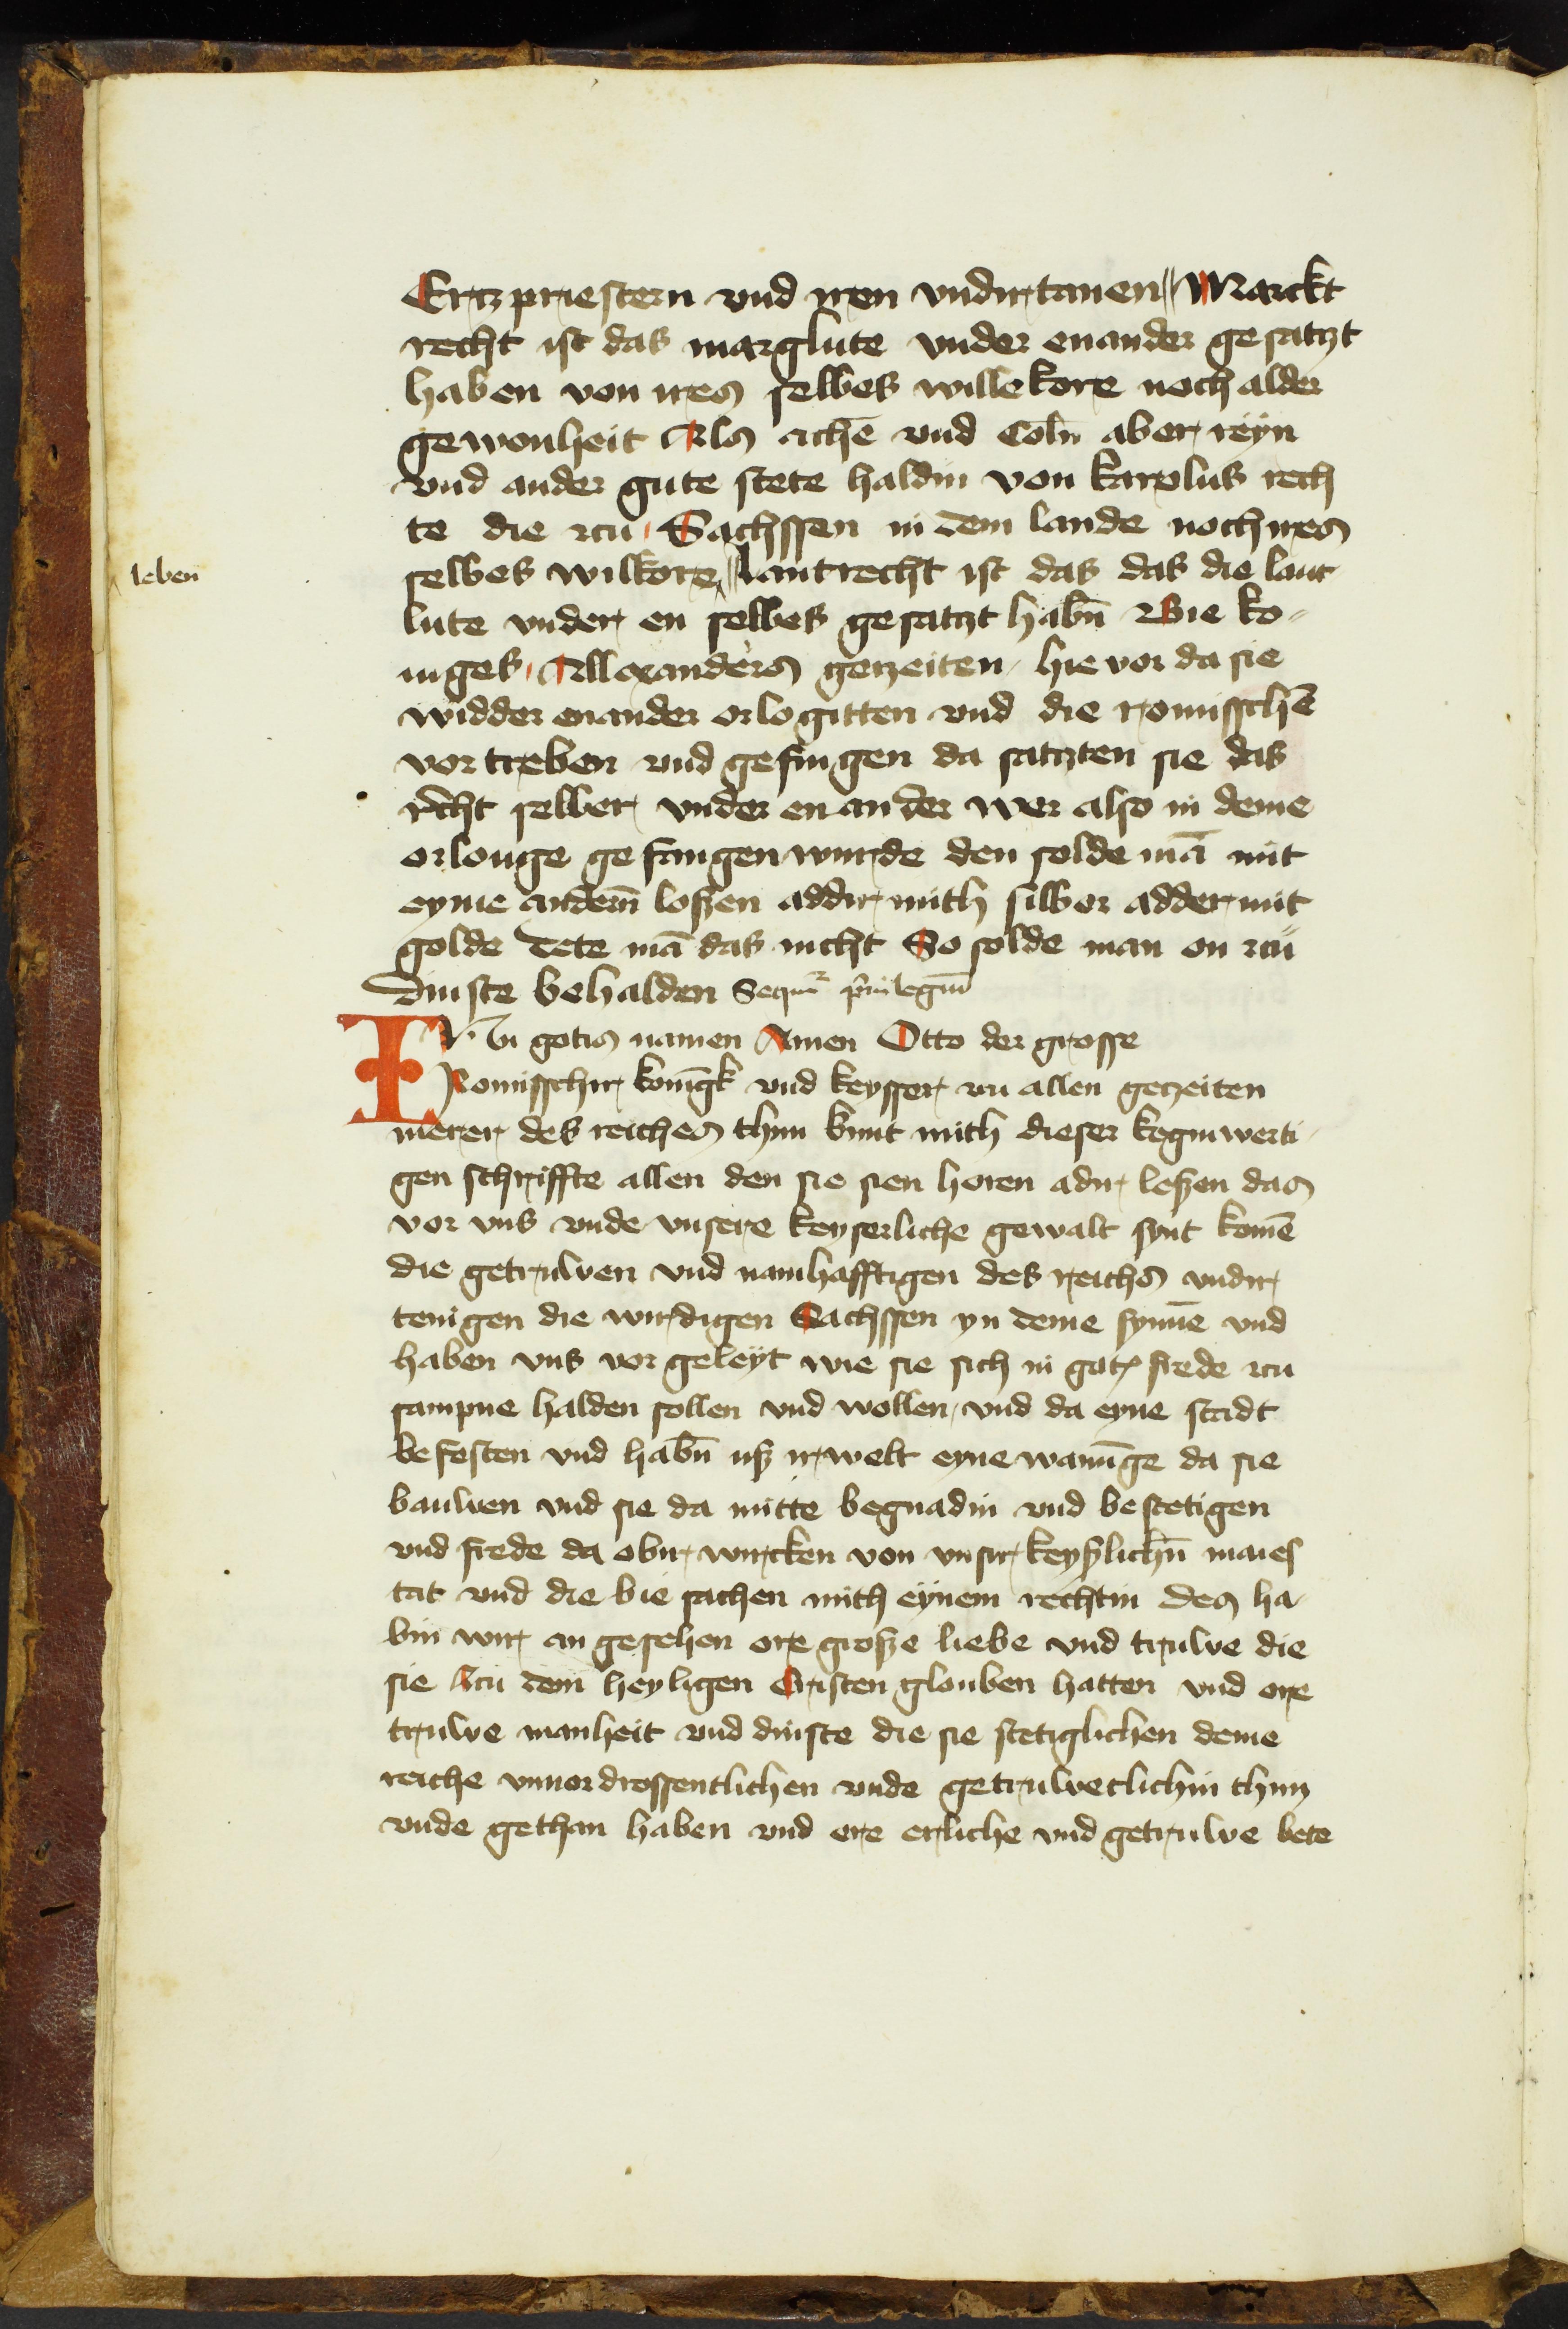 Ertzpriestern vnd iren vndirtanen Marckt
recht ist das marglute vnder enander gesatzt
haben von ires selbes willekore noch alder
gewonheit Als achē vnd Coln̄ aber reyn
vnd ander gute stete haldin von karolus rech
te die zcu Sachssen in dem lande noch ires
leben
selbes wilkore lantrecht ist das das die lant
lute vnder en selbes gesatzt habn̄ Bie ko-
niges Allexanders getzeiten hie vor da sie
widder enander orlogitten vnd die romisschē
vortreben vnd gefingen da satzten sie das
recht selber vnder enander wer also in deme
orlouge gefangen wurde den solde mā mit
eyme andern̄ loszen addir mith silber adder mit
golde tete mā das nicht So solde man en zcu
dinste behalden Sequit᷑ p̄uilegiū
IN gotis namen Amen Otto der grosse
Romisschir konīgk vnd keysser zcu allen getzeiten
merer des reiches thun kunt mith dieser keginwerti
gen schriffte allen den sie sien horen adir leszen das
vor vns vnde vnsere keyserliche gewalt synt komē
die getruwen vnd namhafftigen des reichs vndir
tenigen die wirdigen Sachssen yn deme synnē vnd
haben vns vor geleyt wie sie sich in gotꝭ frede zcu
sampne halden sollen vnd wollen vnd da eyne stadt
befesten vnd habn̄ usz irwelt eyne wanūge da sie
bauwen vnd sie da mitte begnadin vnd bestetigen
vnd frede da obir wircken von vnsir keyszlichn̄ maies
tat vnd die bie sachen mith eynem rechtin des ha
bin wir an gesehen ore grosze liebe vnd truwe die
sie zcu dem heyligen Cristen glouben hatten vnd ore
truwe manheit vnd dinste die sie stetiglichen deme
reiche vnuordrossentlichen vnde getruwetlichin thun
vnde gethan haben vnd ere erliche vnd getruwe bete